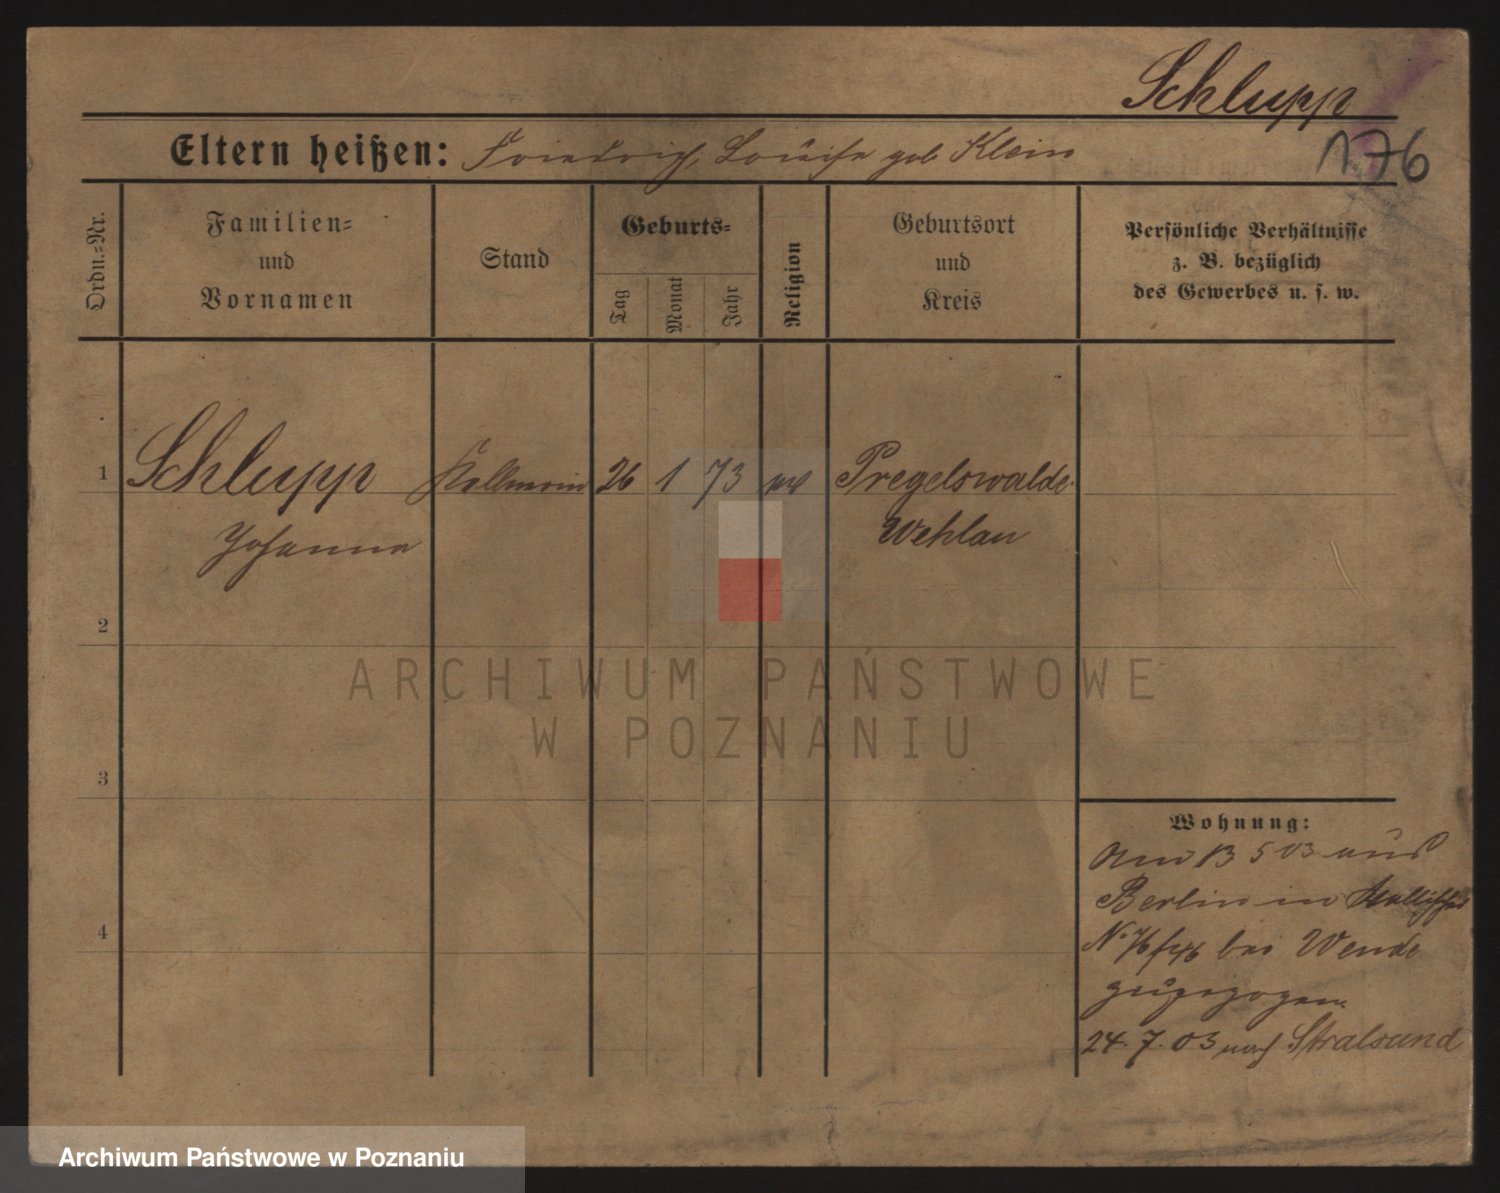 Schlupp
176
Eltern heißen: Friedrich, Louise geb Klein
Ordn.-Nr.
Familien-
und
Vornamen
Stand
Geburts-
Tag
Monat
Jahr
Religion
Geburtsort
und
Kreis
Persönliche Verhältnisse
z. B. bezüglich
des Gewerbes u. s. w.
1 Schlupp Kellnerin 26 1 73 ev Pregelswalde
Johanna Wehlau
2
ARCHIWUM PAŃSTWOWE
W POZNANIU
3
Wohnung:
Am 13 5 03 aus
Berlin in
4
bei Wende
zugezogen
24. 7. 03 nach Stralsund
Archiwum Państwowe w Poznaniu